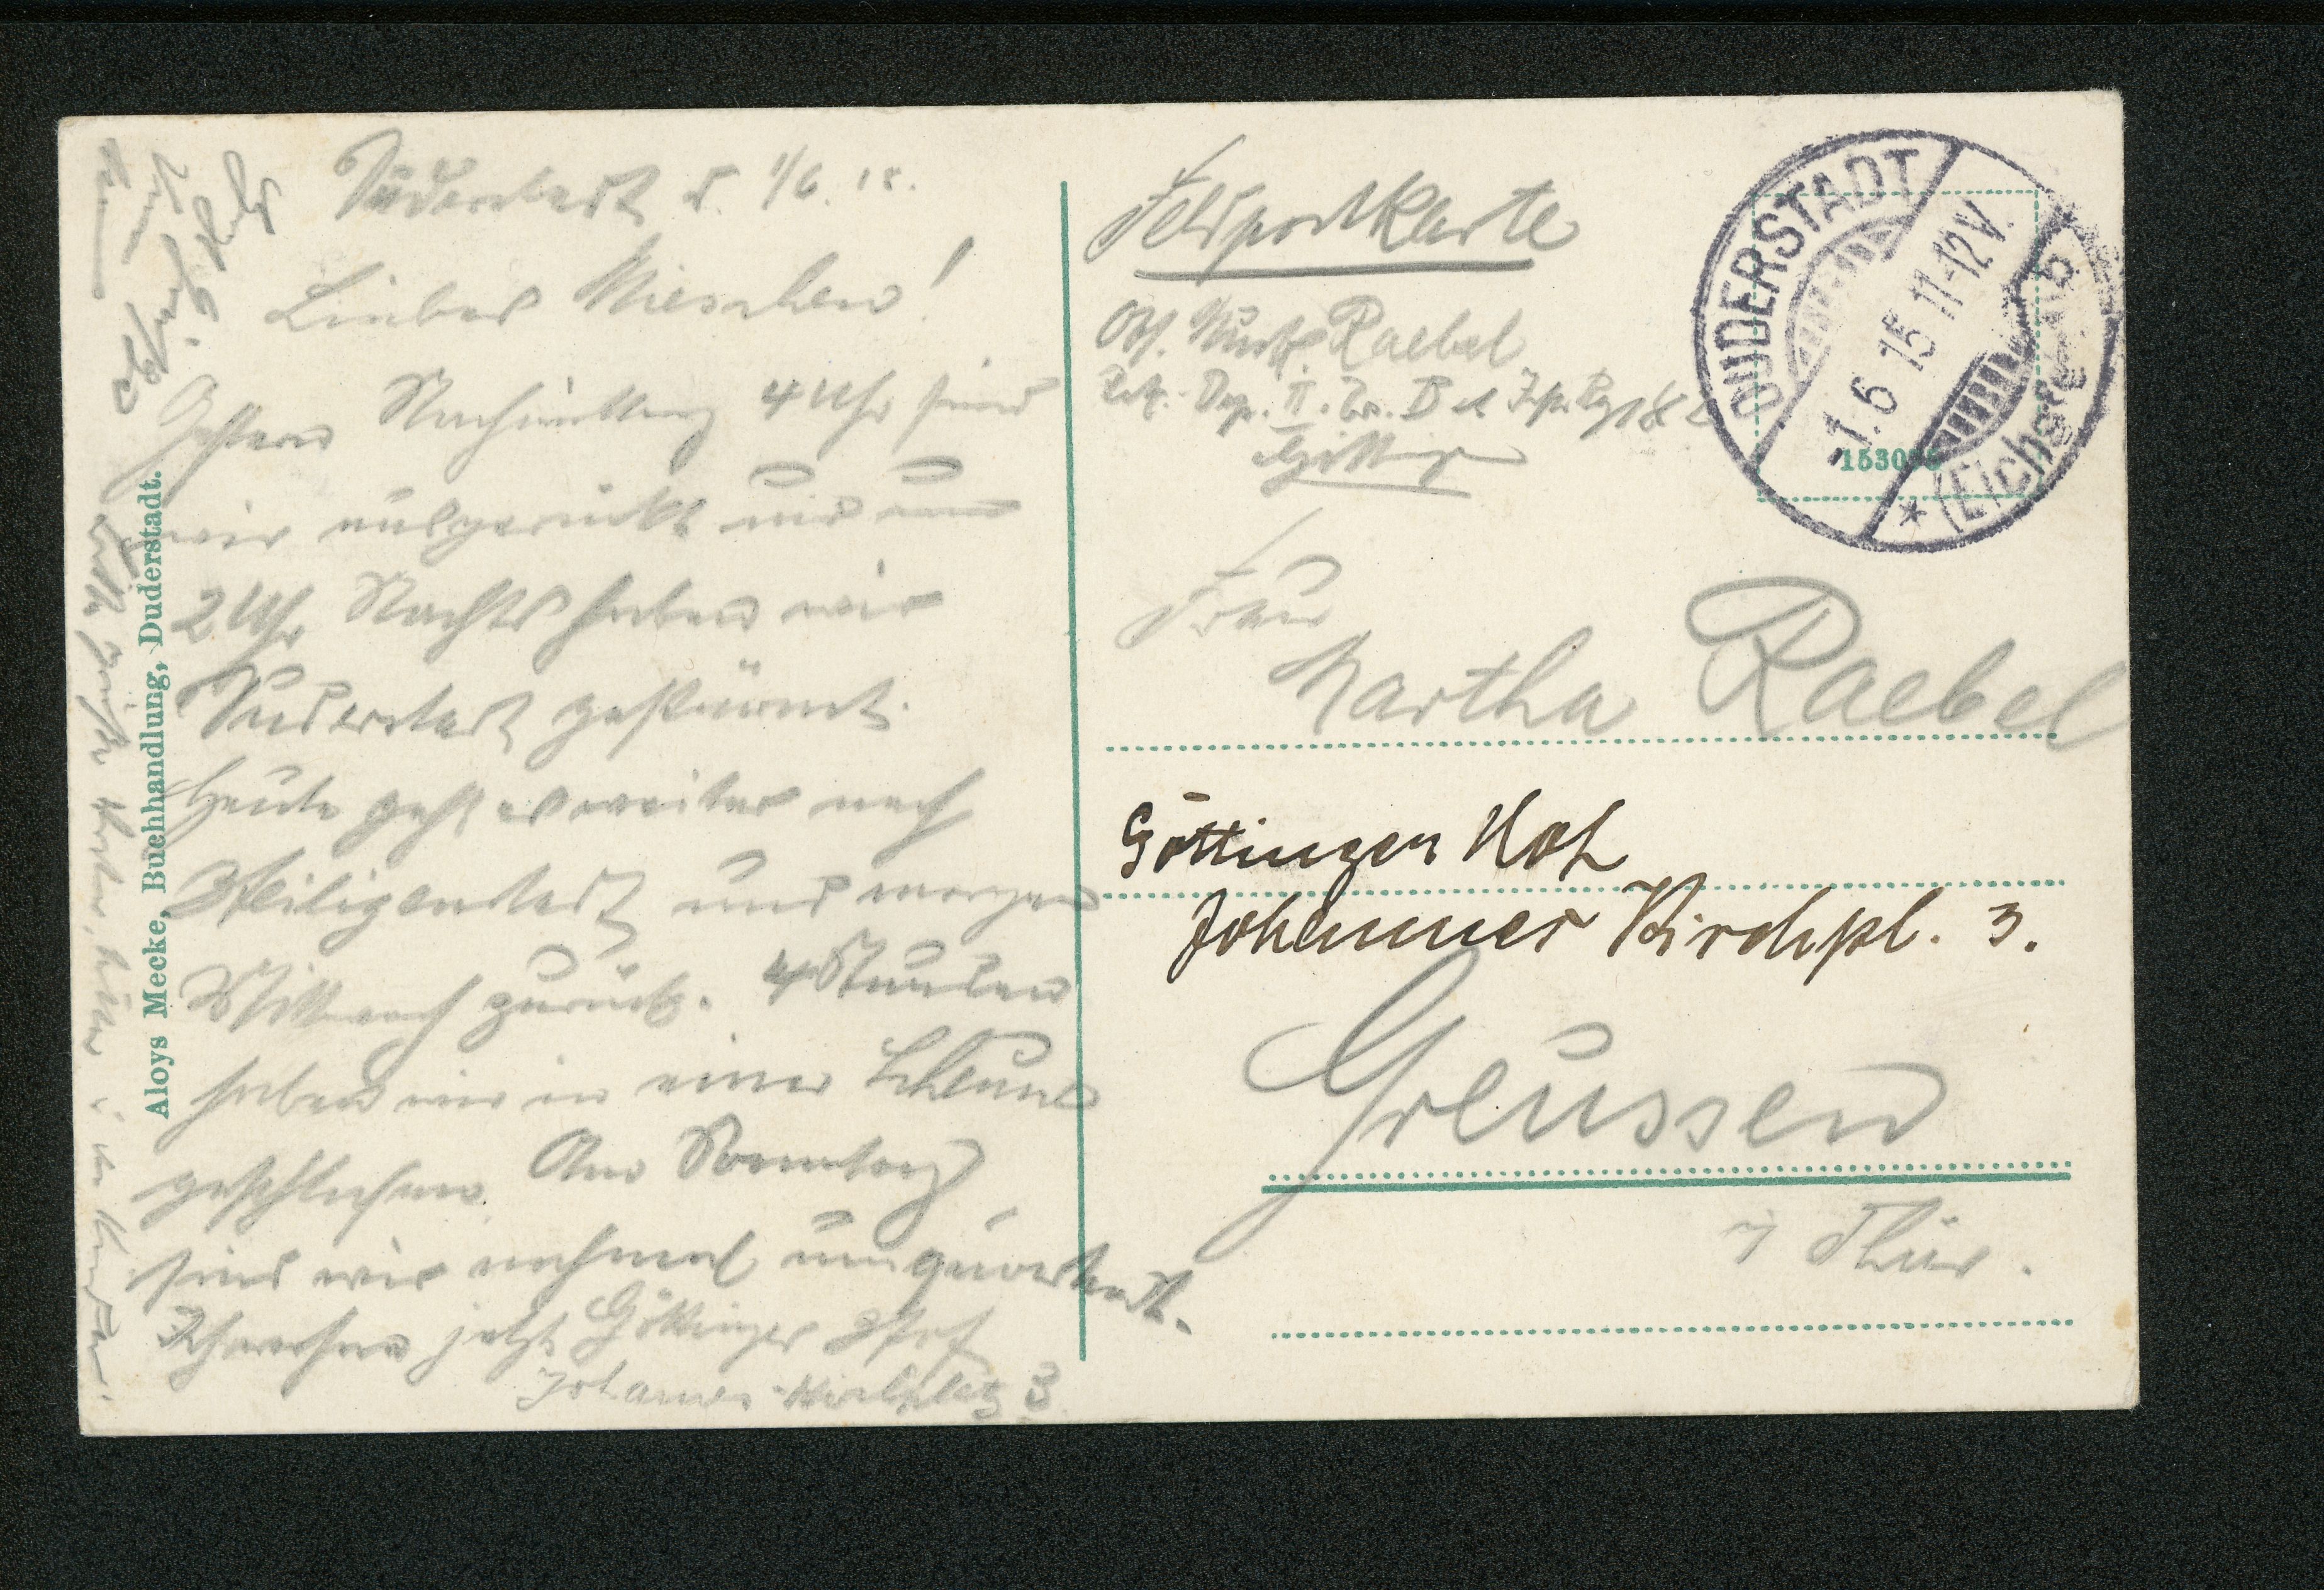 Duderstadt d. 1/6. 15.
Liebes Mieschen!
Gestern Nachmittag 4 Uhr sind
wir ausgerückt und um
2 Uhr Nachts haben wir
Duderstadt gestürmt.
Heute geht es weiter nach
Heiligenstadt und morgen
Mittwoch zurück. 4 Stunden
haben wir in einer Scheune
geschlafen. Am Sonntag
sind wir nochmal umquartiert.
Ich wohne jetzt Göttinger Hof
Johannes-Kirchplatz 3
Aloys Mecke, Buchhandlung, Duderstadt.
Feldpostkarte
Abs. Raebel
Rek.-Dep. II. Ers. B. d. Inf. Rgt. 82
Göttingen
DUDERSTADT
1.6 15 11-12V.
* (Eichsfeld) b
15309
Frau
Martha Raebel
Göttinger Hof
Johannes Kirchpl. 3.
Greussen
i Thür.